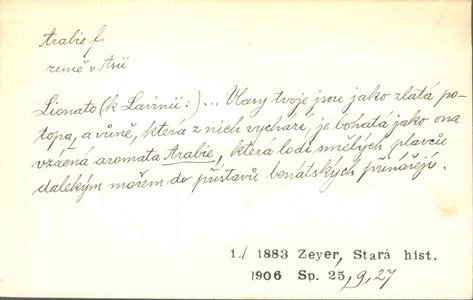 Arabie f.
země v Asii
Lionato (k Lavinii:) ... Vlasy tvoje jsou jako zlatá po-
topa, a vůně, která z nich vychází, je bohatá jako ona
vzácná aromata Arabie, která lodi smělých plavců
dalekým mořem do přístavů benátských přinášejí.
1./ 1883 Zeyer, Stará hist.
1906 Sp. 25, 9, 27